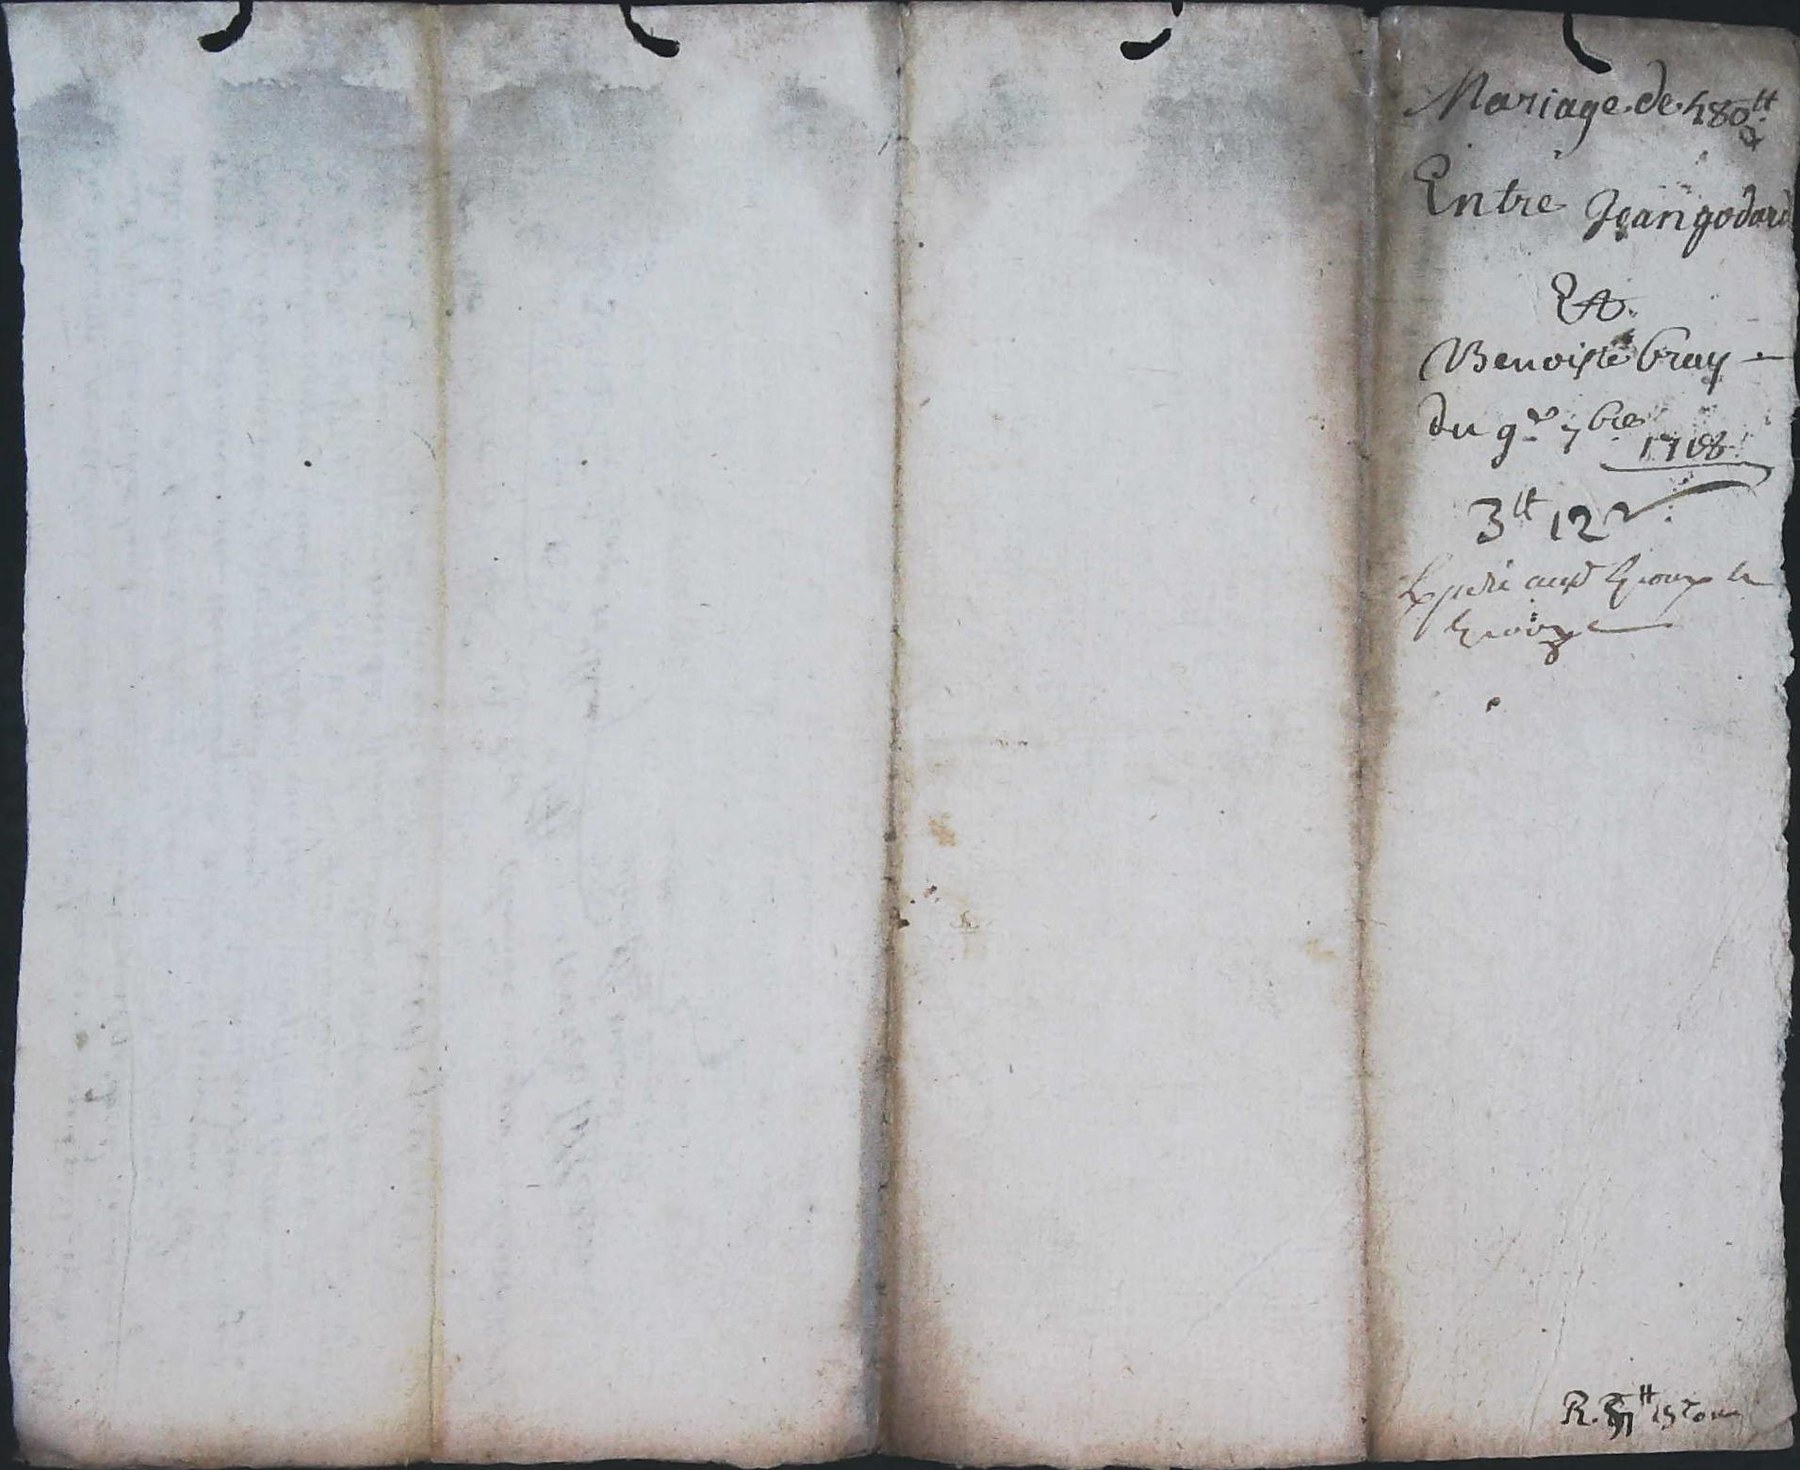 Mariage de 480ᵗᵗ
Entre Jean godard
Et
Benoiste Gray
du 9ᵉ 7bre
1708
3ᵗᵗ 12
Expedié aux Epoux
R.